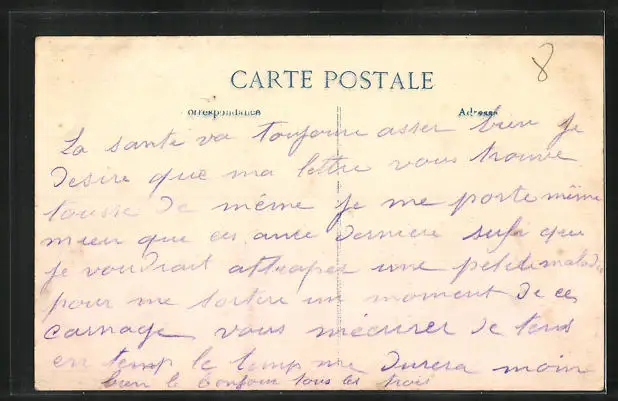 8
CARTE POSTALE
orrespondance Adresse
La santé va toujours asser bien je
desire que ma lettre vous trouve
tousse de même je me porte même
mieu que ces anée derniere suf que
je voudrait attraper une petite maladie
pour me sortire un moment de ce
carnage vous mécrirer de tend
en temp le temp me durera moin
bien le bonjour tous les trois